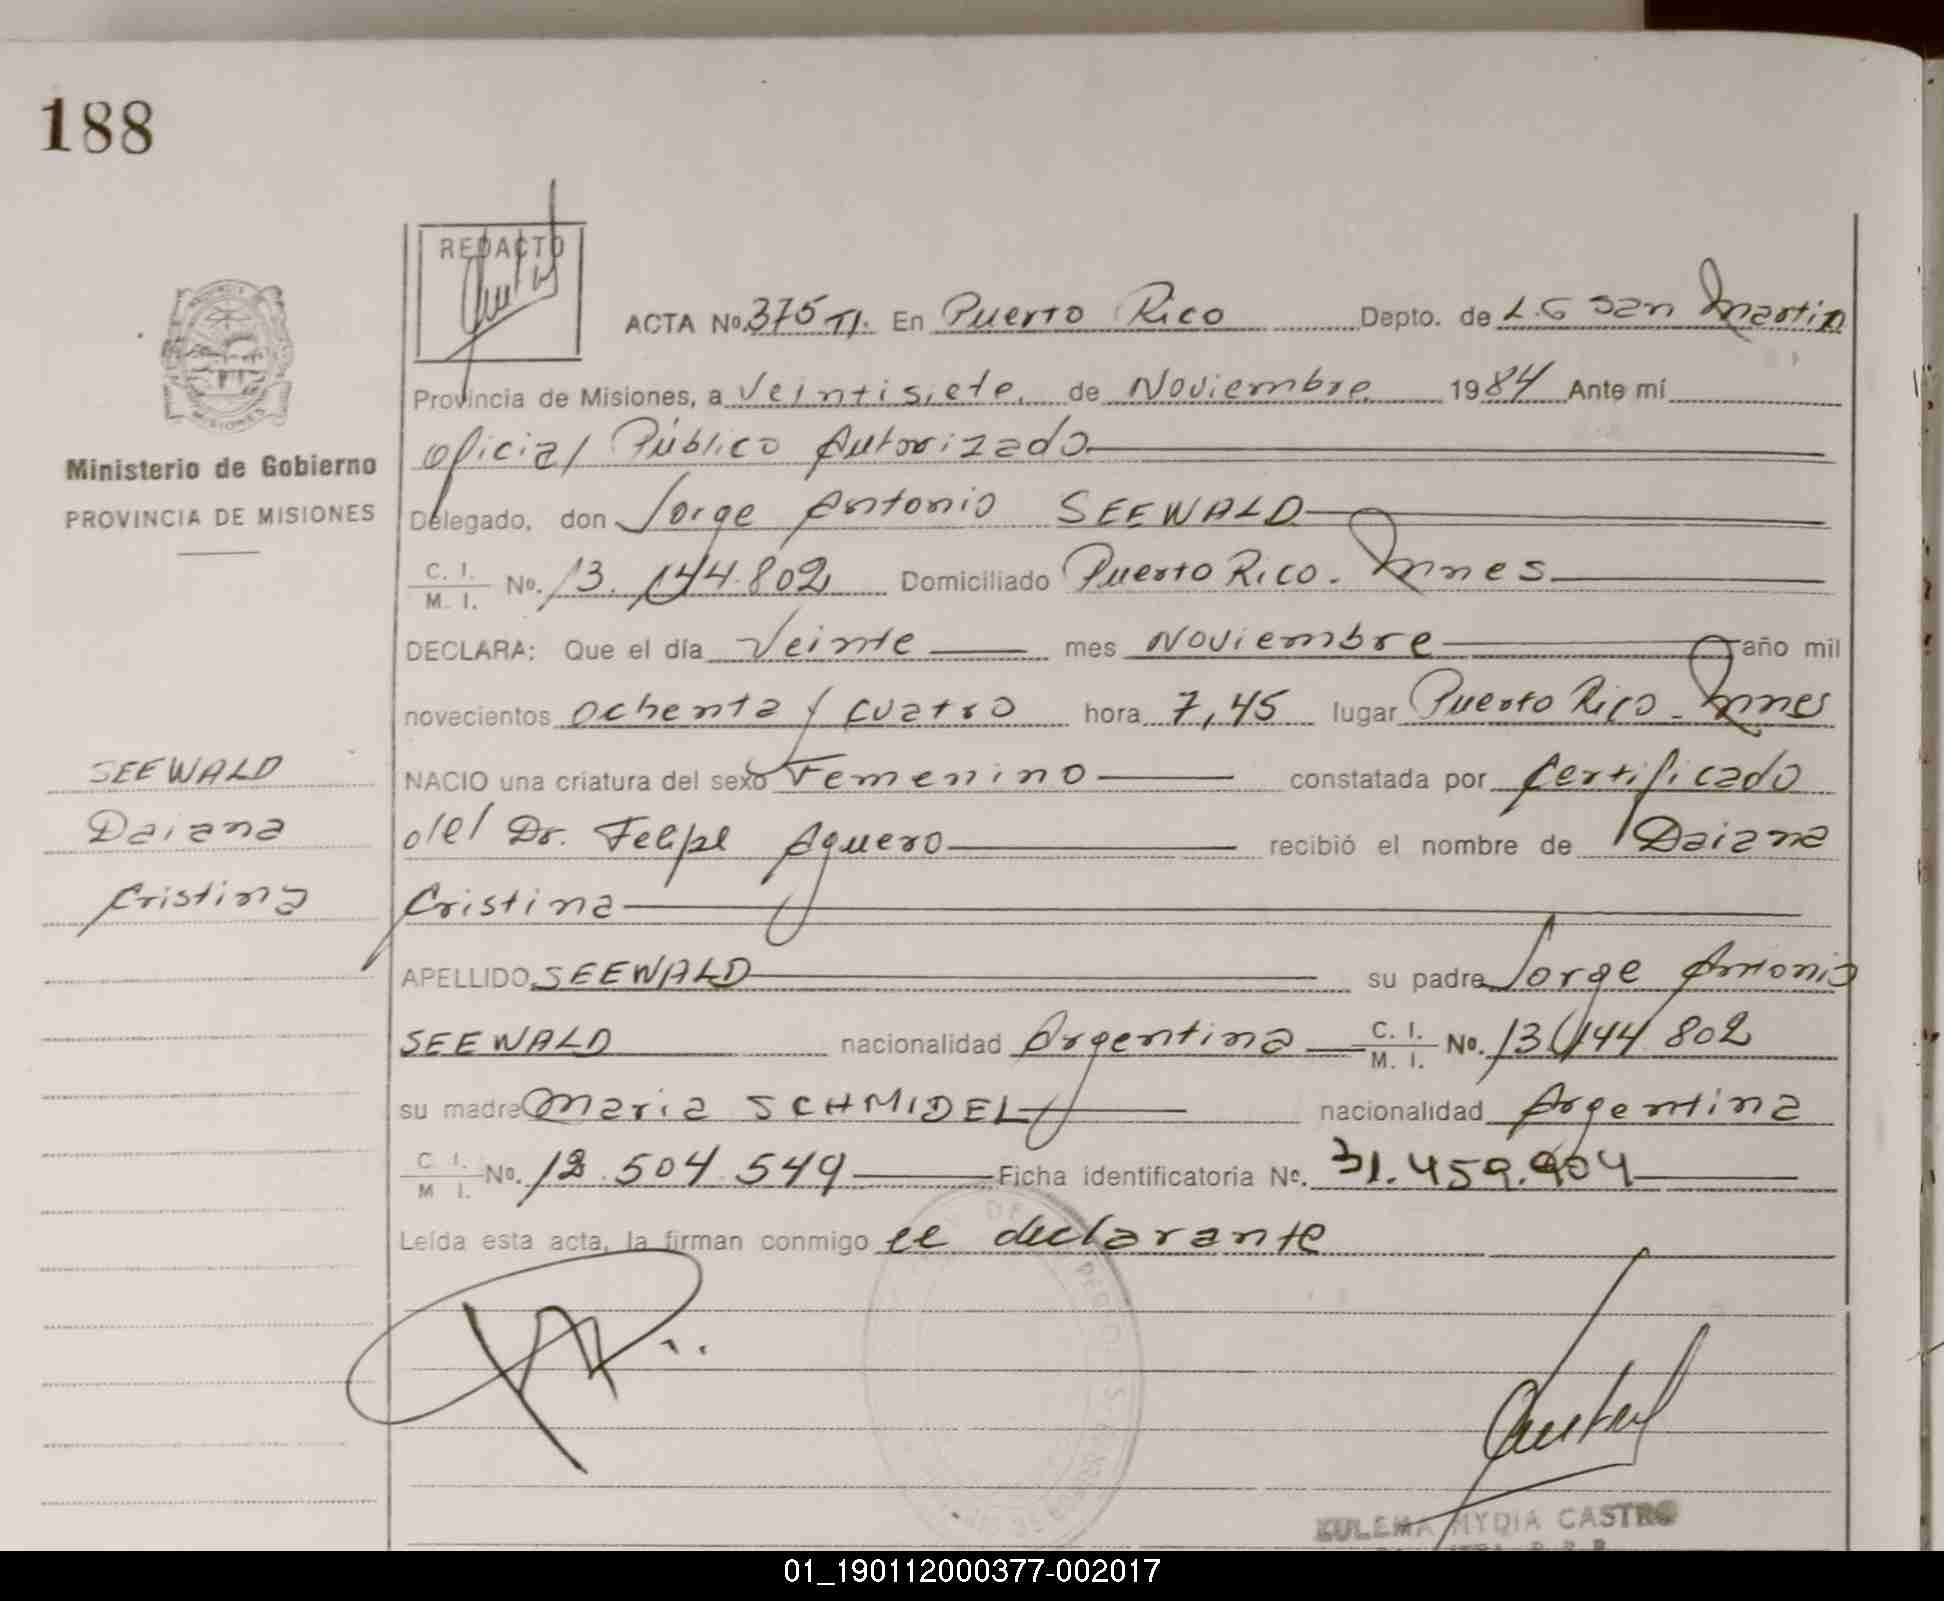 188
REDACTO
ACTA No. 375 TI. En Puerto Rico Depto. de L.G San Martin
Provincia de Misiones, a Veintisiete. de Noviembre 1984 Ante mí
Oficial Público Autorizado
Ministerio de Gobierno
PROVINCIA DE MISIONES
Delegado, don Jorge Antonio SEEWALD
C. I. M. I. No. 13.144.802 Domiciliado Puerto Rico. Mnes
DECLARA: Que el día Veinte mes Noviembre año mil
novecientos ochenta y cuatro hora 7,45 lugar Puerto Rico - Mnes
SEEWALD
Daiana
Cristina
NACIO una criatura del sexo Femenino constatada por Certificado
del Dr. Felipe Aguero recibió el nombre de Daiana
Cristina
APELLIDO SEEWALD su padre Jorge Antonio
SEEWALD nacionalidad Argentina C. I. M. I. No. 13.144.802
su madre Maria SCHMIDEL nacionalidad Argentina
C I. M I. No. 12.504.549 Ficha identificatoria No. 31.459.904
Leída esta acta, la firman conmigo el declarante
MYDIA CASTRO
01_190112000377-002017